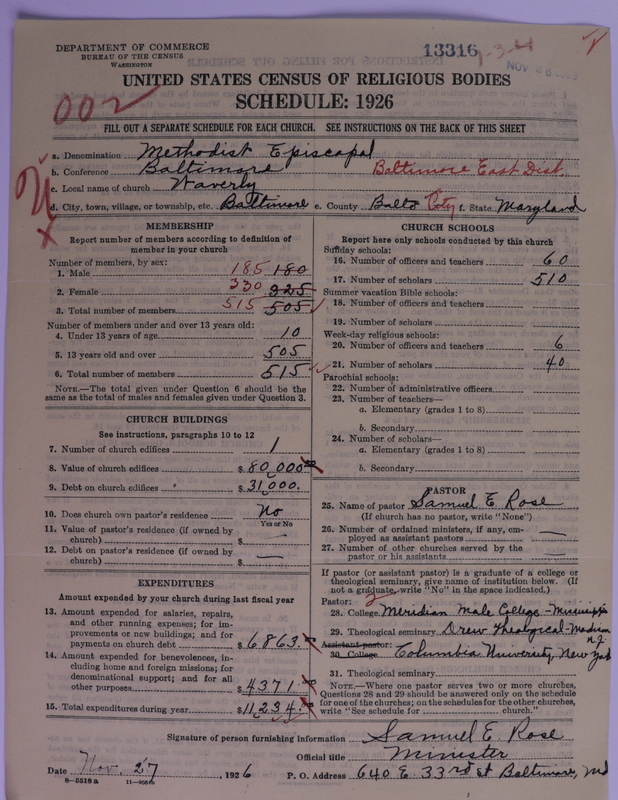 DEPARTMENT OF COMMERCE
BUREAU OF THE CENSUS
WASHINGTON
13316
1-3-4
NOV
UNITED STATES CENSUS OF RELIGIOUS BODIES
SCHEDULE: 1926
002
FILL OUT A SEPARATE SCHEDULE FOR EACH CHURCH. SEE INSTRUCTIONS ON THE BACK OF THIS SHEET
a. Denomination Methodist Episcopal
b. Conference Baltimore Baltimore East Dist.
c. Local name of church Waverly
d. City, town, village, or township, etc. Baltimore e. County Balto City f. State Maryland
MEMBERSHIP
Report number of members according to definition of
member in your church
Number of members, by sex:
1. Male 185 180
2. Female 330 325
3. Total number of members 515 505
Number of members under and over 13 years old:
4. Under 13 years of age 10
5. 13 years old and over 505
6. Total number of members 515
NOTE.—The total given under Question 6 should be the
same as the total of males and females given under Question 3.
CHURCH BUILDINGS
See instructions, paragraphs 10 to 12
7. Number of church edifices 1
8. Value of church edifices $ 80,000
9. Debt on church edifices $ 31,000.
10. Does church own pastor's residence No
Yes or No
11. Value of pastor's residence (if owned by
church) $ —
12. Debt on pastor's residence (if owned by
church) —
EXPENDITURES
Amount expended by your church during last fiscal year
13. Amount expended for salaries, repairs,
and other running expenses; for im-
provements or new buildings; and for
payments on church debt $ 6863.
14. Amount expended for benevolences, in-
cluding home and foreign missions; for
denominational support; and for all
other purposes $ 4371.
15. Total expenditures during year $ 11,234.
CHURCH SCHOOLS
Report here only schools conducted by this church
Sunday schools:
16. Number of officers and teachers 60
17. Number of scholars 510
Summer vacation Bible schools:
18. Number of officers and teachers
19. Number of scholars
Week-day religious schools:
20. Number of officers and teachers 6
21. Number of scholars 40
Parochial schools:
22. Number of administrative officers
23. Number of teachers—
a. Elementary (grades 1 to 8)
b. Secondary
24. Number of scholars—
a. Elementary (grades 1 to 8)
b. Secondary
PASTOR
25. Name of pastor Samuel E. Rose
(If church has no pastor, write "None")
26. Number of ordained ministers, if any, em-
ployed as assistant pastors —
27. Number of other churches served by the
pastor or his assistants —
If pastor (or assistant pastor) is a graduate of a college or
theological seminary, give name of institution below. (If
not a graduate, write "No" in the space indicated.)
Pastor: 2
28. College Meridian Male College - Mississippi
29. Theological seminary Drew Theological - Madison N.J.
Assistant pastor:
30. College Columbia University, New York
31. Theological seminary
NOTE.—Where one pastor serves two or more churches,
Questions 28 and 29 should be answered only on the schedule
for one of the churches; on the schedules for the other churches,
write "See schedule for church."
Signature of person furnishing information Samuel E. Rose
Official title Minister
Date Nov. 27, 1926 P. O. Address 640 E. 33rd St Baltimore, Md
8-5518a